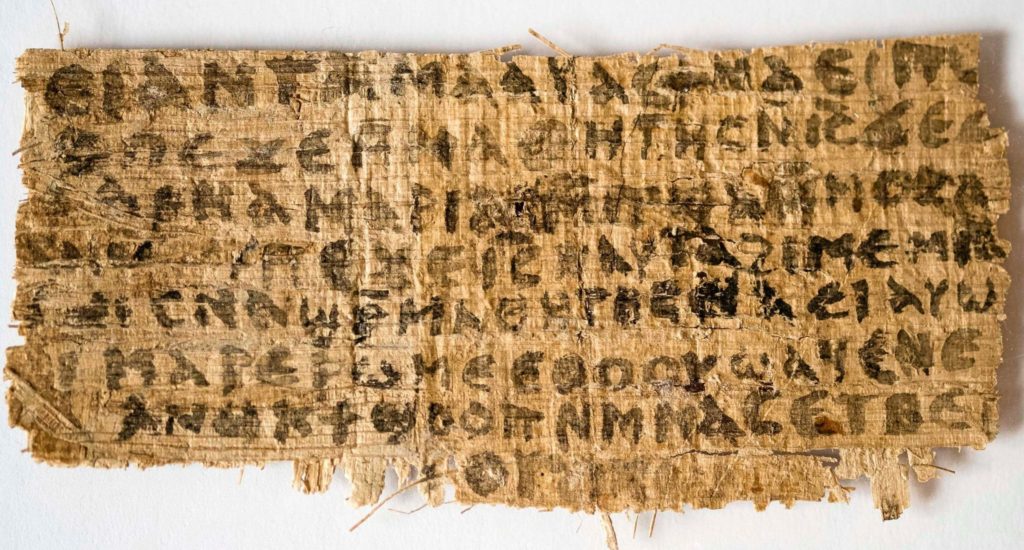 ⲉⲓⲁⲛⲧⲁⲙⲁⲁⲩⲁⲥϯⲛⲁⲉⲓⲡ
ⲡⲉϫⲉⲙⲙⲁⲑⲏⲧⲏⲥⲛⲓ̅ⲥ̅ϫⲉⲥ
ⲁⲣⲛⲁⲙⲁⲣⲓⲁⲙⲙⲡϣⲁⲙⲙⲟⲥⲁ
ⲡⲉϫⲉⲓ̅ⲥ̅ⲛⲁⲩⲧⲁϩⲓⲙⲉⲙⲛ
ⲥⲛⲁϣⲣ̅ⲙⲁⲑⲏⲧⲏⲥⲛⲁⲉⲓⲁⲩⲱ
ⲙⲁⲣⲉⲣⲱⲙⲉⲉⲑⲟⲟⲩϣⲁϥⲉⲛⲉ
ⲁⲛⲟⲕϯϣⲟⲟⲡⲛⲙⲙⲁⲥⲉⲧⲃⲉ